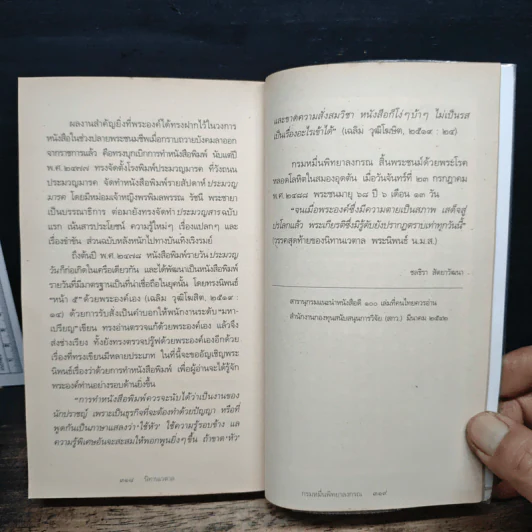 ผลงานสำคัญยิ่งที่พระองค์ได้ทรงฝากไว้ในวงการ
หนังสือในช่วงปลายพระชนมชีพเมื่อกราบถวายบังคมลาออก
จากราชการแล้ว คือทรงบุกเบิกการทำหนังสือพิมพ์ นับแต่ปี
พ.ศ. ๒๔๗๗ ทรงจัดตั้งโรงพิมพ์ประมวญมารค ที่วังถนน
ประมวญมารค จัดทำหนังสือพิมพ์รายสัปดาห์ ประมวญ
มารค โดยมีหม่อมเจ้าหญิงพรพิมลพรรณ รัชนี พระชายา
เป็นบรรณาธิการ ต่อมายังทรงจัดทำ ประมวญสาร ฉบับ
แรก เน้นสารประโยชน์ ความรู้ใหม่ๆ เรื่องแปลกๆ และ
เรื่องขำขัน ส่วนฉบับหลังหนักไปทางบันเทิงเริงรมย์
ถึงต้นปี พ.ศ. ๒๔๗๘ หนังสือพิมพ์รายวัน ประมวญ
วัน ก็ก่อเกิดในเครือเดียวกัน และได้พัฒนาเป็นหนังสือพิมพ์
รายวันที่มีมาตรฐานเป็นที่น่าเชื่อถือในยุคนั้น โดยทรงนิพนธ์
"หน้า ๕" ด้วยพระองค์เอง (เฉลิม วุฒิโฆษิต, ๒๕๑๙ :
๑๔) ด้วยการรับสั่งเป็นคำบอกให้พนักงานระดับ "มหา-
เปรียญ" เขียน ทรงอ่านตรวจแก้ด้วยพระองค์เอง แล้วจึง
ส่งช่างเรียง ทั้งยังทรงตรวจปรู๊ฟด้วยพระองค์เองอีกด้วย
เรื่องที่ทรงเขียนมีหลายประเภท ในที่นี้จะขออัญเชิญพระ
นิพนธ์เรื่องว่าด้วยการทำหนังสือพิมพ์ เพื่อผู้อ่านจะได้รู้จัก
พระองค์ท่านอย่างรอบด้านยิ่งขึ้น
"การทำหนังสือพิมพ์ควรจะนับได้ว่าเป็นงานของ
นักปราชญ์ เพราะเป็นธุรกิจที่จะต้องทำด้วยปัญญา หรือที่
พูดกันเป็นภาษาแสลงว่า 'ใช้หัว' ใช้ความรู้รอบข้าง แล
ความรู้พิเศษอันจะสะสมให้พอกพูนยิ่งๆขึ้น ถ้าขาด 'หัว'
๓๑๘ นิทานเวตาล
และขาดความสั่งสมวิชา หนังสือก็โง่ๆบ้าๆ ไม่เป็นรส
เป็นเรื่องอะไรเข้าได้" (เฉลิม วุฒิโฆษิต, ๒๕๑๙ : ๒๔)
กรมหมื่นพิทยาลงกรณ สิ้นพระชนม์ด้วยพระโรค
หลอดโลหิตในสมองอุดตัน เมื่อวันจันทร์ที่ ๒๓ กรกฎาคม
พ.ศ. ๒๔๘๘ พระชนมายุ ๖๘ ปี ๖ เดือน ๑๓ วัน
"จนเมื่อพระองค์ซึ่งมีความตายเป็นสภาพ เสด็จสู่
ปรโลกแล้ว พระเกียรติซึ่งมิรู้ดับยังปรากฏตราบเท่าทุกวันนี้"
(วรรคสุดท้ายของนิทานเวตาล พระนิพนธ์ น.ม.ส.)
ชลธิรา สัตยาวัฒนา
สารานุกรมแนะนำหนังสือดี ๑๐๐ เล่มที่คนไทยควรอ่าน
สำนักงานกองทุนสนับสนุนการวิจัย (สกว.) มีนาคม ๒๕๔๒
กรมหมื่นพิทยาลงกรณ ๓๑๙